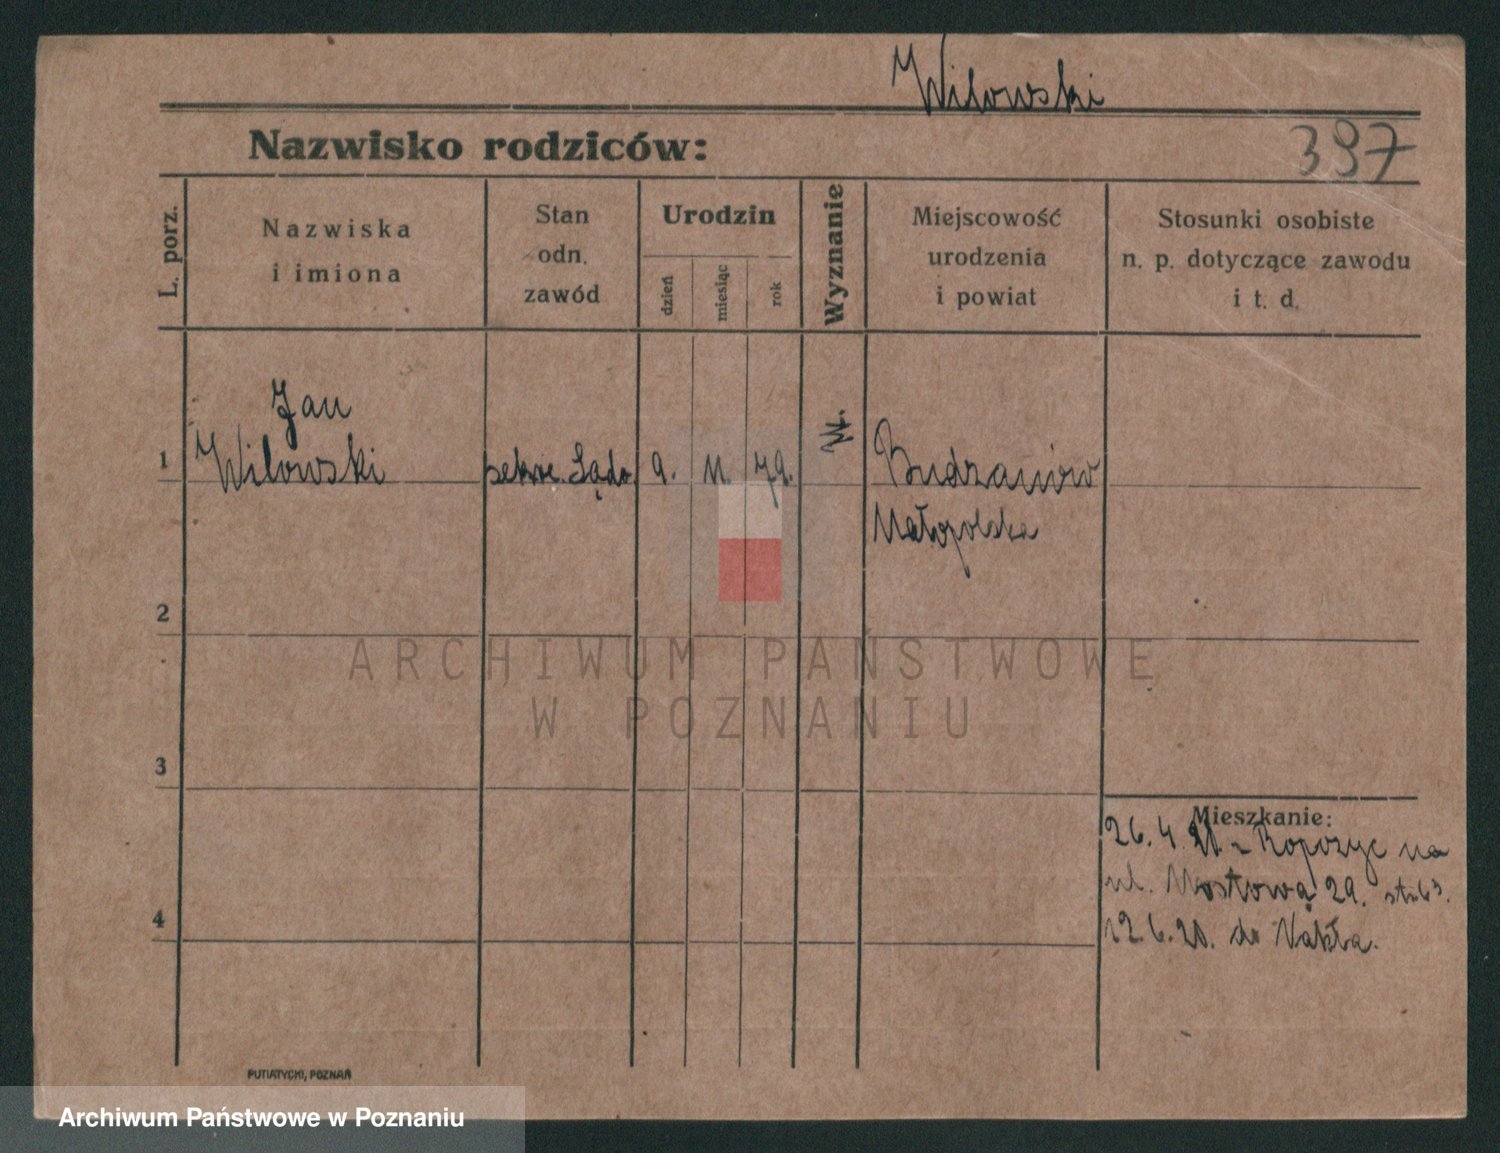 Wilowski
Nazwisko rodziców:
397
L. porz.
Nazwiska
i imiona
Stan
odn.
zawód
Urodzin
dzień
miesiąc
rok
Wyznanie
Miejscowość
urodzenia
i powiat
Stosunki osobiste
n. p. dotyczące zawodu
i t. d.
Jan
1 Wilowski 9. 11. 79. Budzanów
Małopolska
2
ARCHIWUM PAŃSTWOWE
W POZNANIU
3
Mieszkanie:
26. 4. - Ropczyc na
ul. Mostową 29.
4
12.6.20. do Nakła.
PUTIATYCKI, POZNAŃ
Archiwum Państwowe w Poznaniu